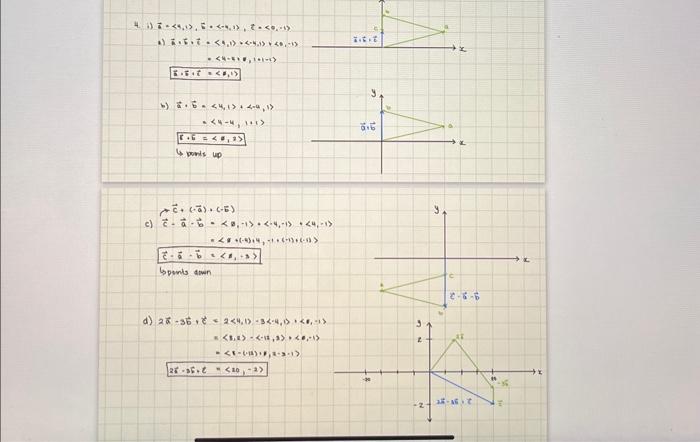 4. i) a⃗ = <4,1>, b⃗ = <-4,1>, c⃗ = <0,-1>
a) a⃗ + b⃗ + c⃗ = <4,1> + <-4,1> + <0,-1>
= <4-4+0, 1+1-1>
a⃗ + b⃗ + c⃗ = <0,1>
b
c
a
a⃗+b⃗+c⃗
x
b) a⃗ + b⃗ = <4,1> + <-4,1>
= <4-4, 1+1>
a⃗ + b⃗ = <0,2>
↳ points up
y
b
a
a⃗+b⃗
x
c⃗ + (-a⃗) + (-b⃗)
c) c⃗ - a⃗ - b⃗ = <0,-1> + <-4,-1> + <4,-1>
= <0+(-4)+4, -1+(-1)+(-1)>
c⃗ - a⃗ - b⃗ = <0,-3>
↳points down
y
x
c
a
b
c⃗-a⃗-b⃗
d) 2a⃗ - 3b⃗ + c⃗ = 2<4,1> - 3<-4,1> + <0,-1>
= <8,2> - <-12,3> + <0,-1>
= <8-(-12)+0, 2-3-1>
2a⃗ - 3b⃗ + c⃗ = <20,-2>
y
2
2a⃗
-20
20
x
-3b⃗
-2
2a⃗-3b⃗+c⃗
c⃗